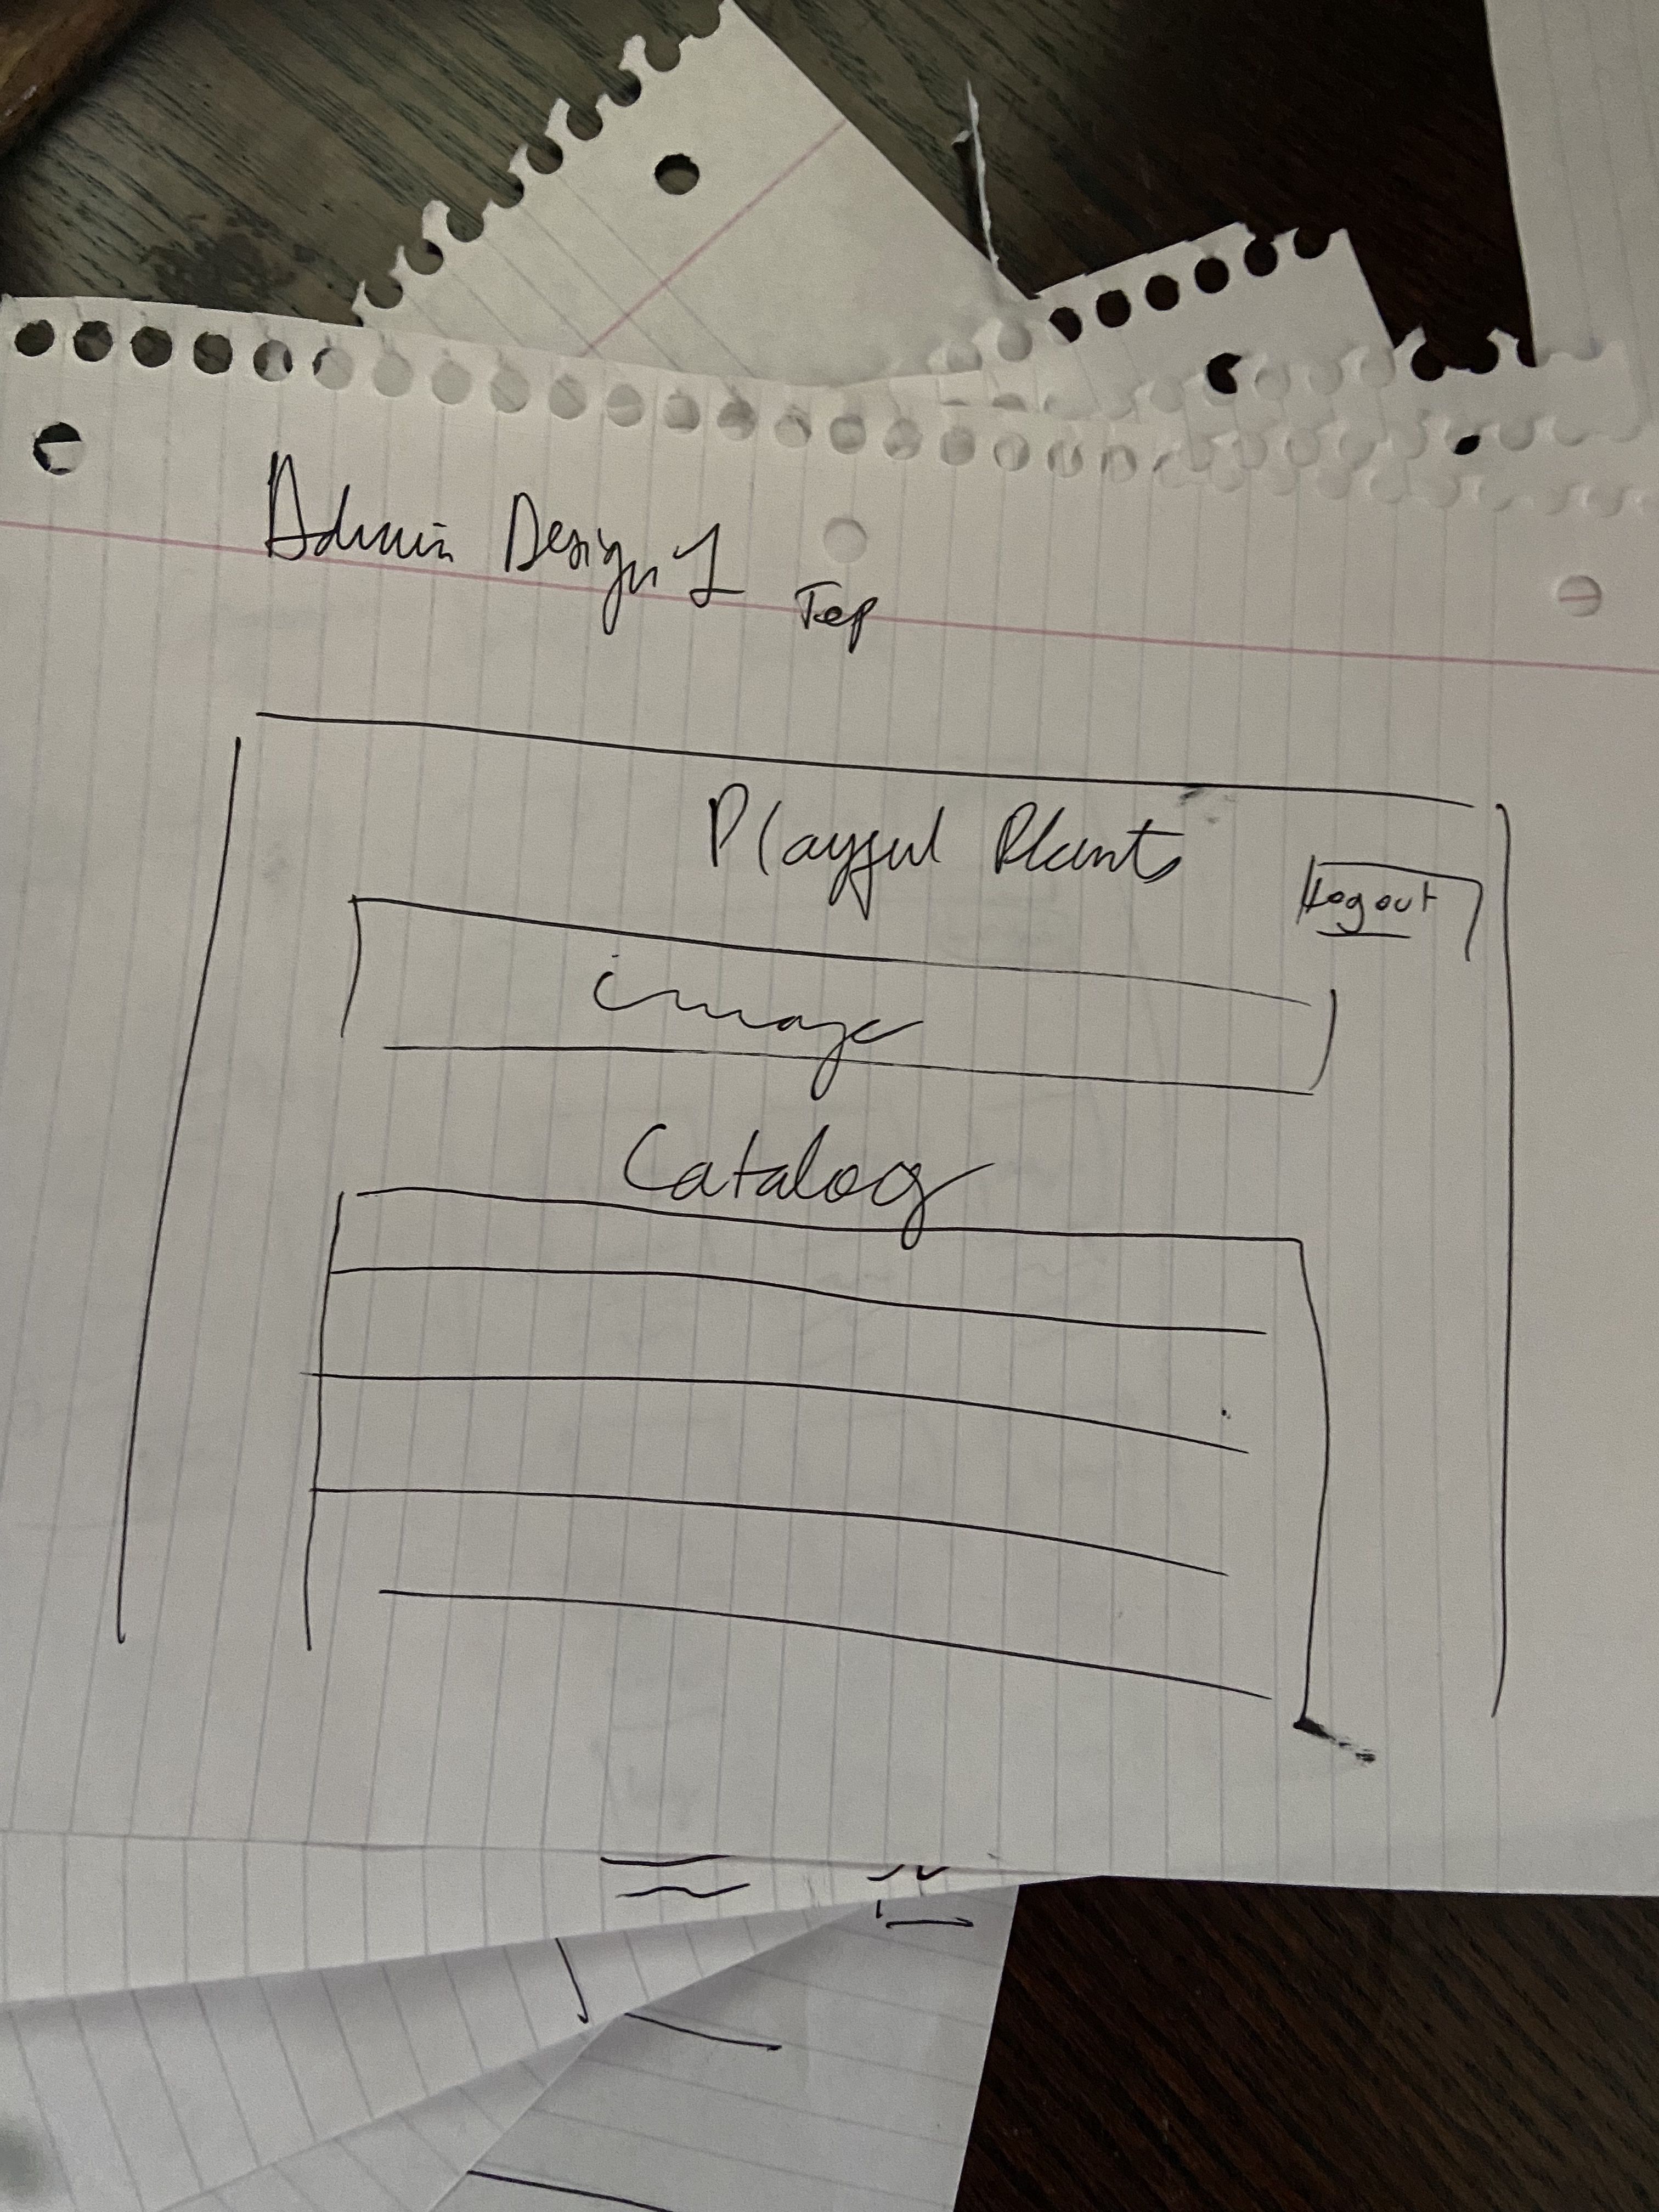 Admin Design 1
Top
Playful Plants
Logout
image
Catalog